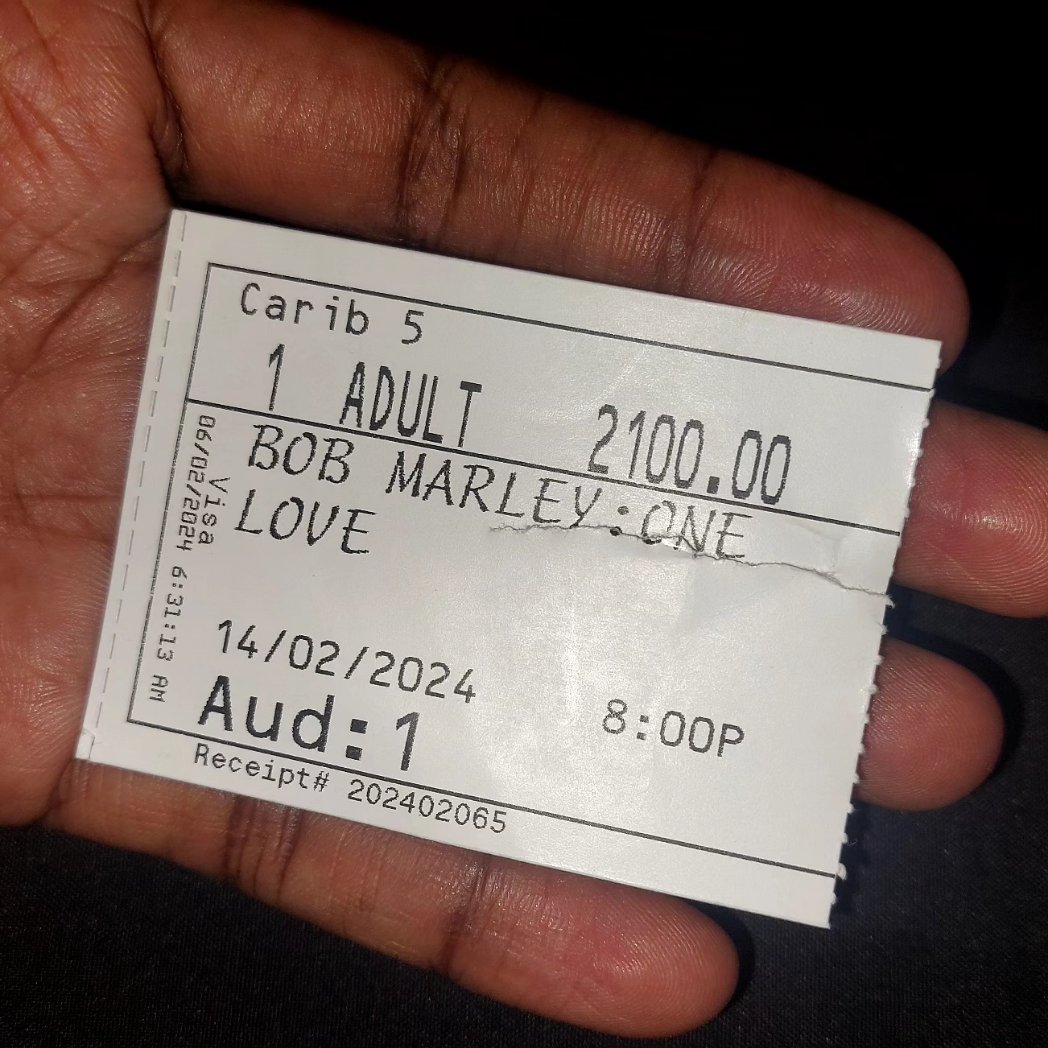 Carib 5
1 ADULT 2100.00
BOB MARLEY:ONE
LOVE
14/02/2024 8:00P
Aud:1
Receipt# 202402065
Visa
06/02/2024 6:31:13 AM